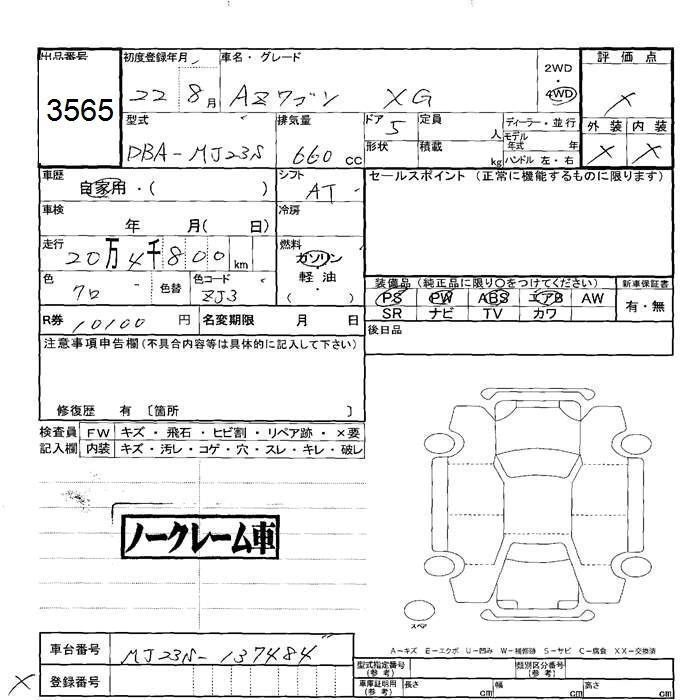 出品番号 初度登録年月 車名・グレード 2WD 評価点
3565 22 8月 AZワゴン XG ・ 4WD X
型式 排気量 ドア 5 定員 人 ディーラー・並行 外装 内装
DBA-MJ23S 660 cc 形状 積載 kg モデル年式 年 X X
ハンドル 左・右
車歴 自家用・( ) シフト AT セールスポイント (正常に機能するものに限ります)
車検 年 月( 日) 冷房
走行 20万4千800km 燃料 ガソリン・軽油 ( )
色 クロ 色替 色コード ZJ3 装備品 (純正品に限り○をつけてください) 新車保証書
PS PW ABS エアB AW 有・無
R券 10100 円 名変期限 月 日 SR ナビ TV カワ
注意事項申告欄(不具合内容等は具体的に記入して下さい) 後日品
修復歴 有 〔箇所 〕
検査員 FW キズ・飛石・ヒビ割・リペア跡・×要
記入欄 内装 キズ・汚レ・コゲ・穴・スレ・キレ・破レ
ノークレーム車
スペア
A-キズ E-エクボ U-凹み W-補修跡 S-サビ C-腐食 XX-交換済
車台番号 MJ23S-137484
型式指定番号(参考) 類別区分番号(参考)
X 登録番号 車庫証明用(参考) 長さ cm 幅 cm 高さ cm